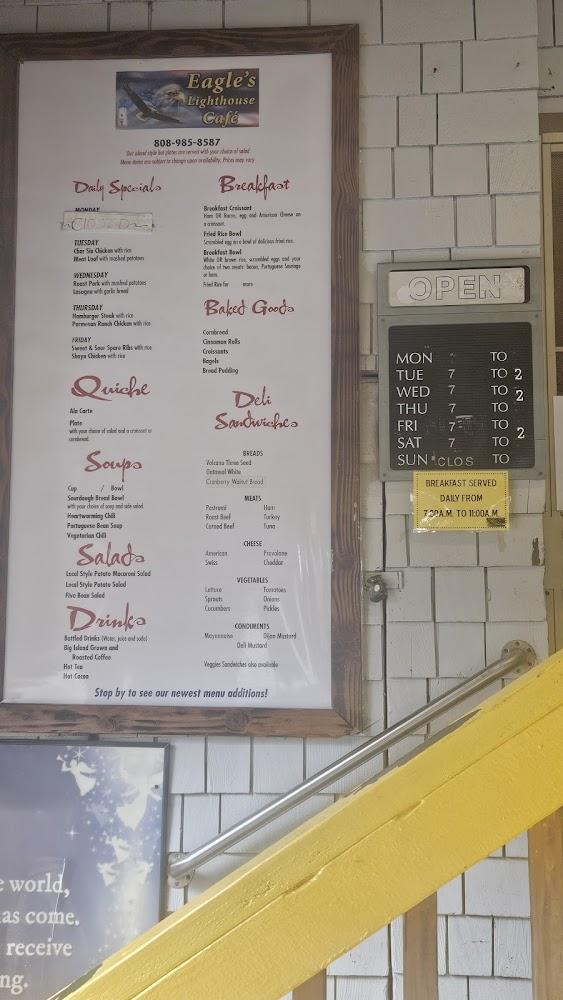 Eagle's
Lighthouse
Café
808-985-8587
Our island style hot plates are served with your choice of salad
Menu items are subject to change upon availability. Prices may vary
Daily Specials
MONDAY
CLOSED
TUESDAY
Char Siu Chicken with rice
Meat Loaf with mashed potatoes
WEDNESDAY
Roast Pork with mashed potatoes
Lasagna with garlic bread
THURSDAY
Hamburger Steak with rice
Parmesan Ranch Chicken with rice
FRIDAY
Sweet & Sour Spare Ribs with rice
Shoyu Chicken with rice
Quiche
Ala Carte
Plate
with your choice of salad and a croissant or
cornbread.
Soups
Cup / Bowl
Sourdough Bread Bowl
with your choice of soup and side salad
Heartwarming Chili
Portuguese Bean Soup
Vegetarian Chili
Salads
Local Style Potato Macaroni Salad
Local Style Potato Salad
Five Bean Salad
Drinks
Bottled Drinks (Water, juice and soda)
Big Island Grown and
Roasted Coffee
Hot Tea
Hot Cocoa
Breakfast
Breakfast Croissant
Ham OR Bacon, egg and American Cheese on
a croissant.
Fried Rice Bowl
Scrambled egg on a bowl of delicious fried rice.
Breakfast Bowl
White OR brown rice, scrambled eggs and your
choice of two meats: bacon, Portuguese Sausage
or ham.
Fried Rice for more
Baked Goods
Cornbread
Cinnamon Rolls
Croissants
Bagels
Bread Pudding
Deli
Sandwiches
BREADS
Volcano Three Seed
Oatmeal White
Cranberry Walnut Bread
MEATS
Pastrami Ham
Roast Beef Turkey
Corned Beef Tuna
CHEESE
American Provolone
Swiss Cheddar
VEGETABLES
Lettuce Tomatoes
Sprouts Onions
Cucumbers Pickles
CONDIMENTS
Mayonnaise Dijon Mustard
Deli Mustard
Veggies Sandwiches also available
Stop by to see our newest menu additions!
OPEN
MON TO
TUE 7 TO 2
WED 7 TO 2
THU 7 TO
FRI 7 TO 2
SAT 7 TO
SUN CLOS TO
BREAKFAST SERVED
DAILY FROM
7:00A.M. TO 11:00A.M.
world,
has come.
receive